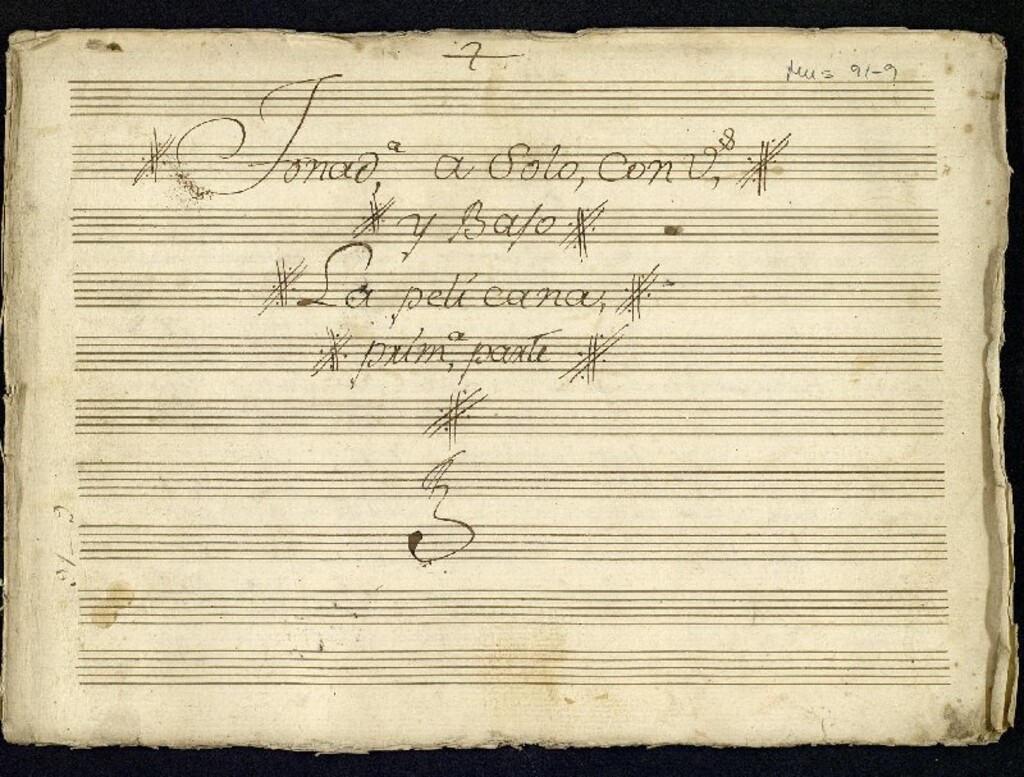 7
Mus 91-9
Tonad.ª a Solo, Con V.s
y Baſo
La peli cana,
prim.ª parte
3